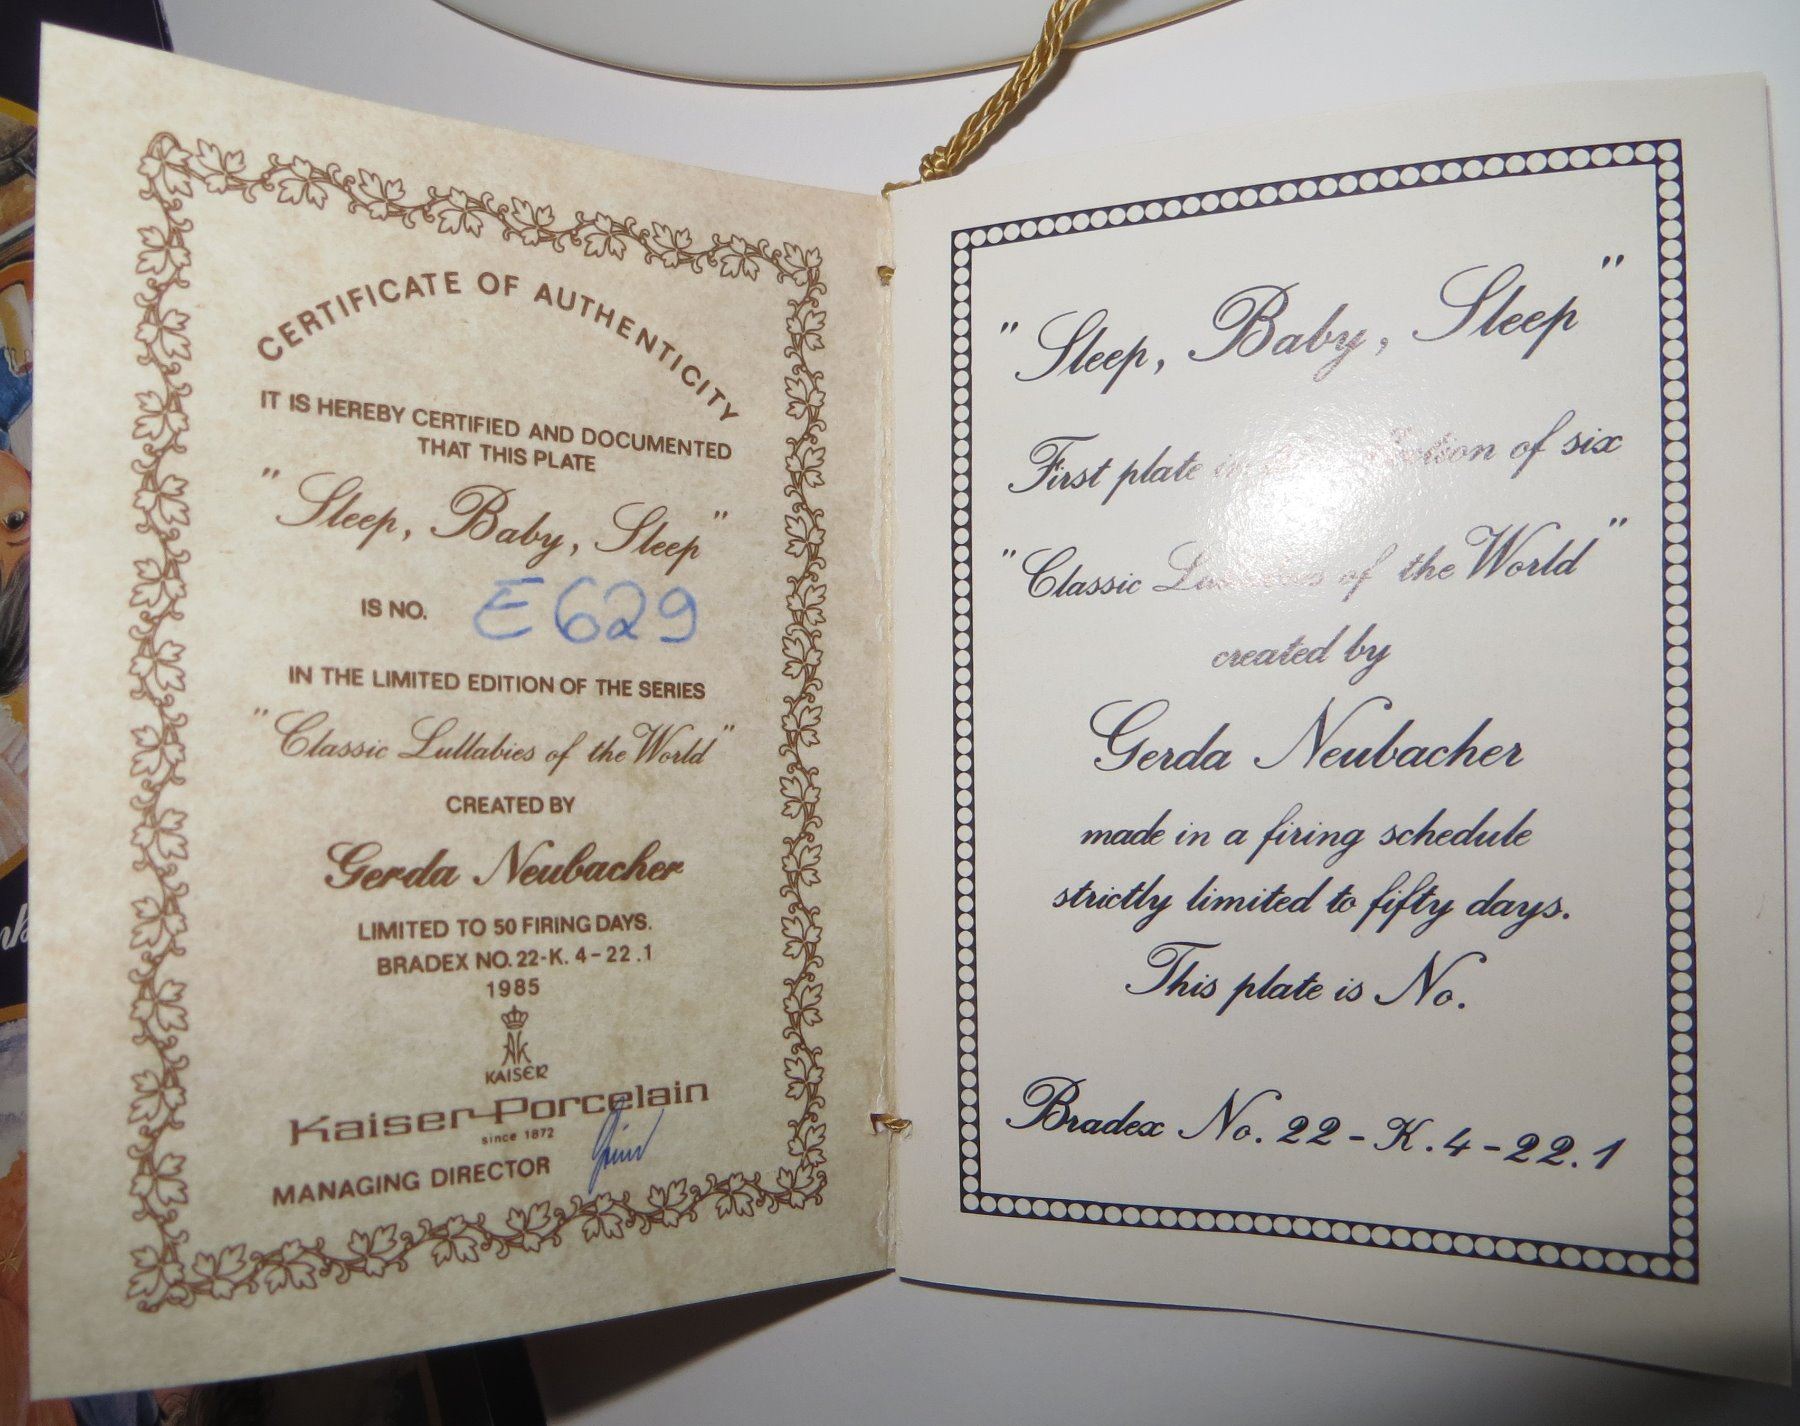 CERTIFICATE OF AUTHENTICITY
IT IS HEREBY CERTIFIED AND DOCUMENTED
THAT THIS PLATE
"Sleep, Baby, Sleep"
IS NO. E629
IN THE LIMITED EDITION OF THE SERIES
"Classic Lullabies of the World"
CREATED BY
Gerda Neubacher
LIMITED TO 50 FIRING DAYS.
BRADEX NO. 22-K. 4-22.1
1985
AK
KAISER
Kaiser-Porcelain
since 1872
MANAGING DIRECTOR
"Sleep, Baby, Sleep"
First plate in of six
"Classic Lullabies of the World"
created by
Gerda Neubacher
made in a firing schedule
strictly limited to fifty days.
This plate is No.
Bradex No. 22-K.4-22.1